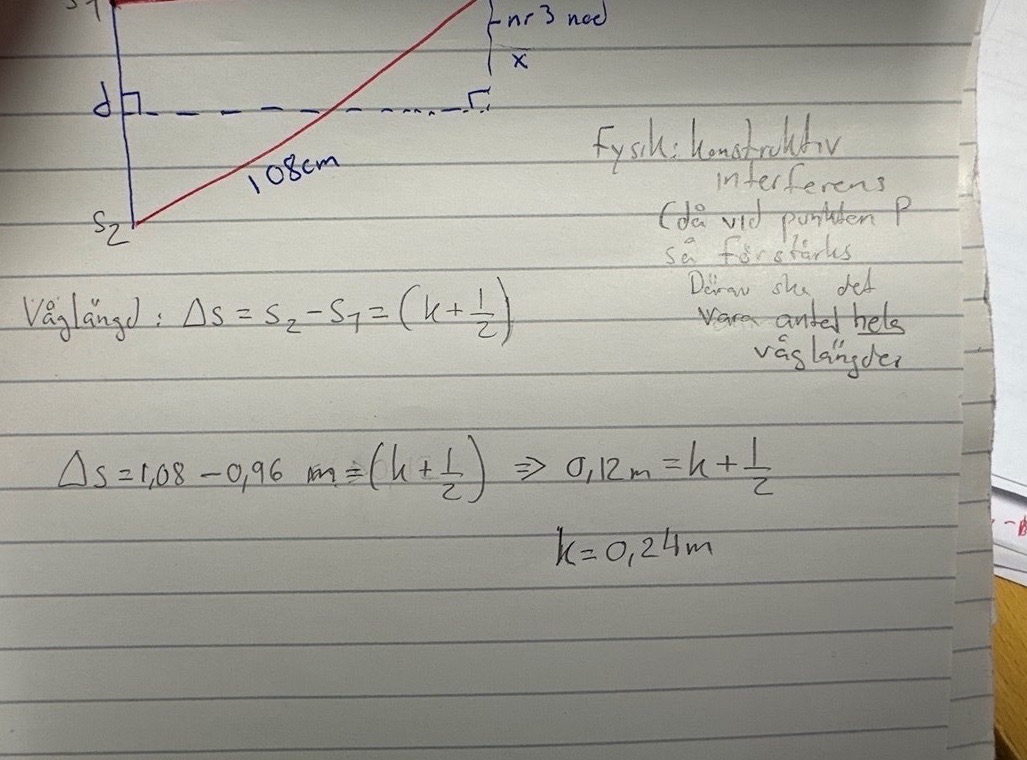 S1
nr 3 nod
x
d
108cm
S2
Fysik: konstruktiv
interferens
(då vid punkten P
så förstärks
Därav ska det
vara antal hela
våglängder
Våglängd: Δs = s₂ - s₁ = (k + 1/2)
Δs = 1,08 - 0,96 m = (k + 1/2) => 0,12m = k + 1/2
k = 0,24m